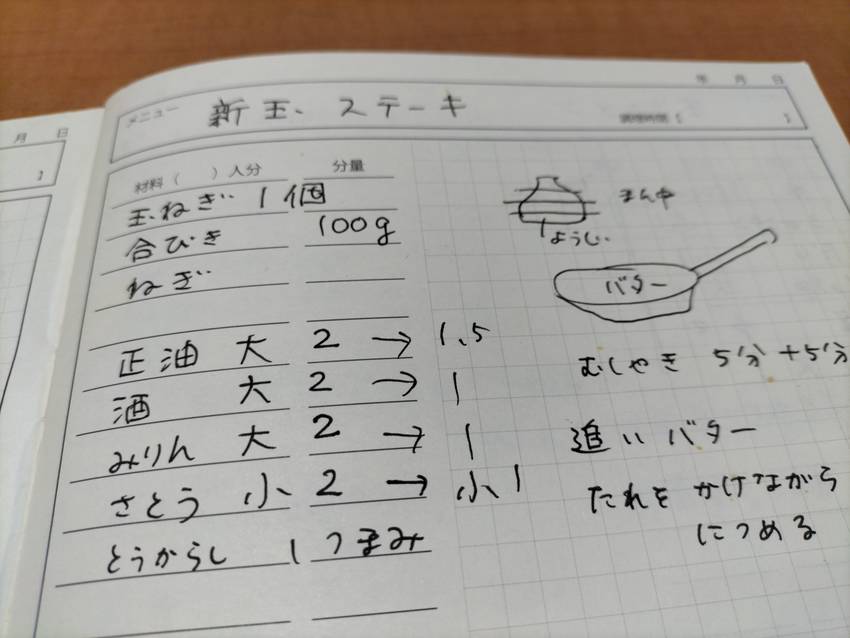 月 日
】
年 月 日
メニュー 新玉、ステーキ
調理時間【 】
材料( )人分 分量
玉ねぎ 1個
合びき 100g
ねぎ
正油 大 2 → 1.5
酒 大 2 → 1
みりん 大 2 → 1
さとう 小 2 → 小1
とうからし 1つまみ
まん中
ようじ
バター
むしやき 5分+5分
追いバター
たれを かけながら
につめる